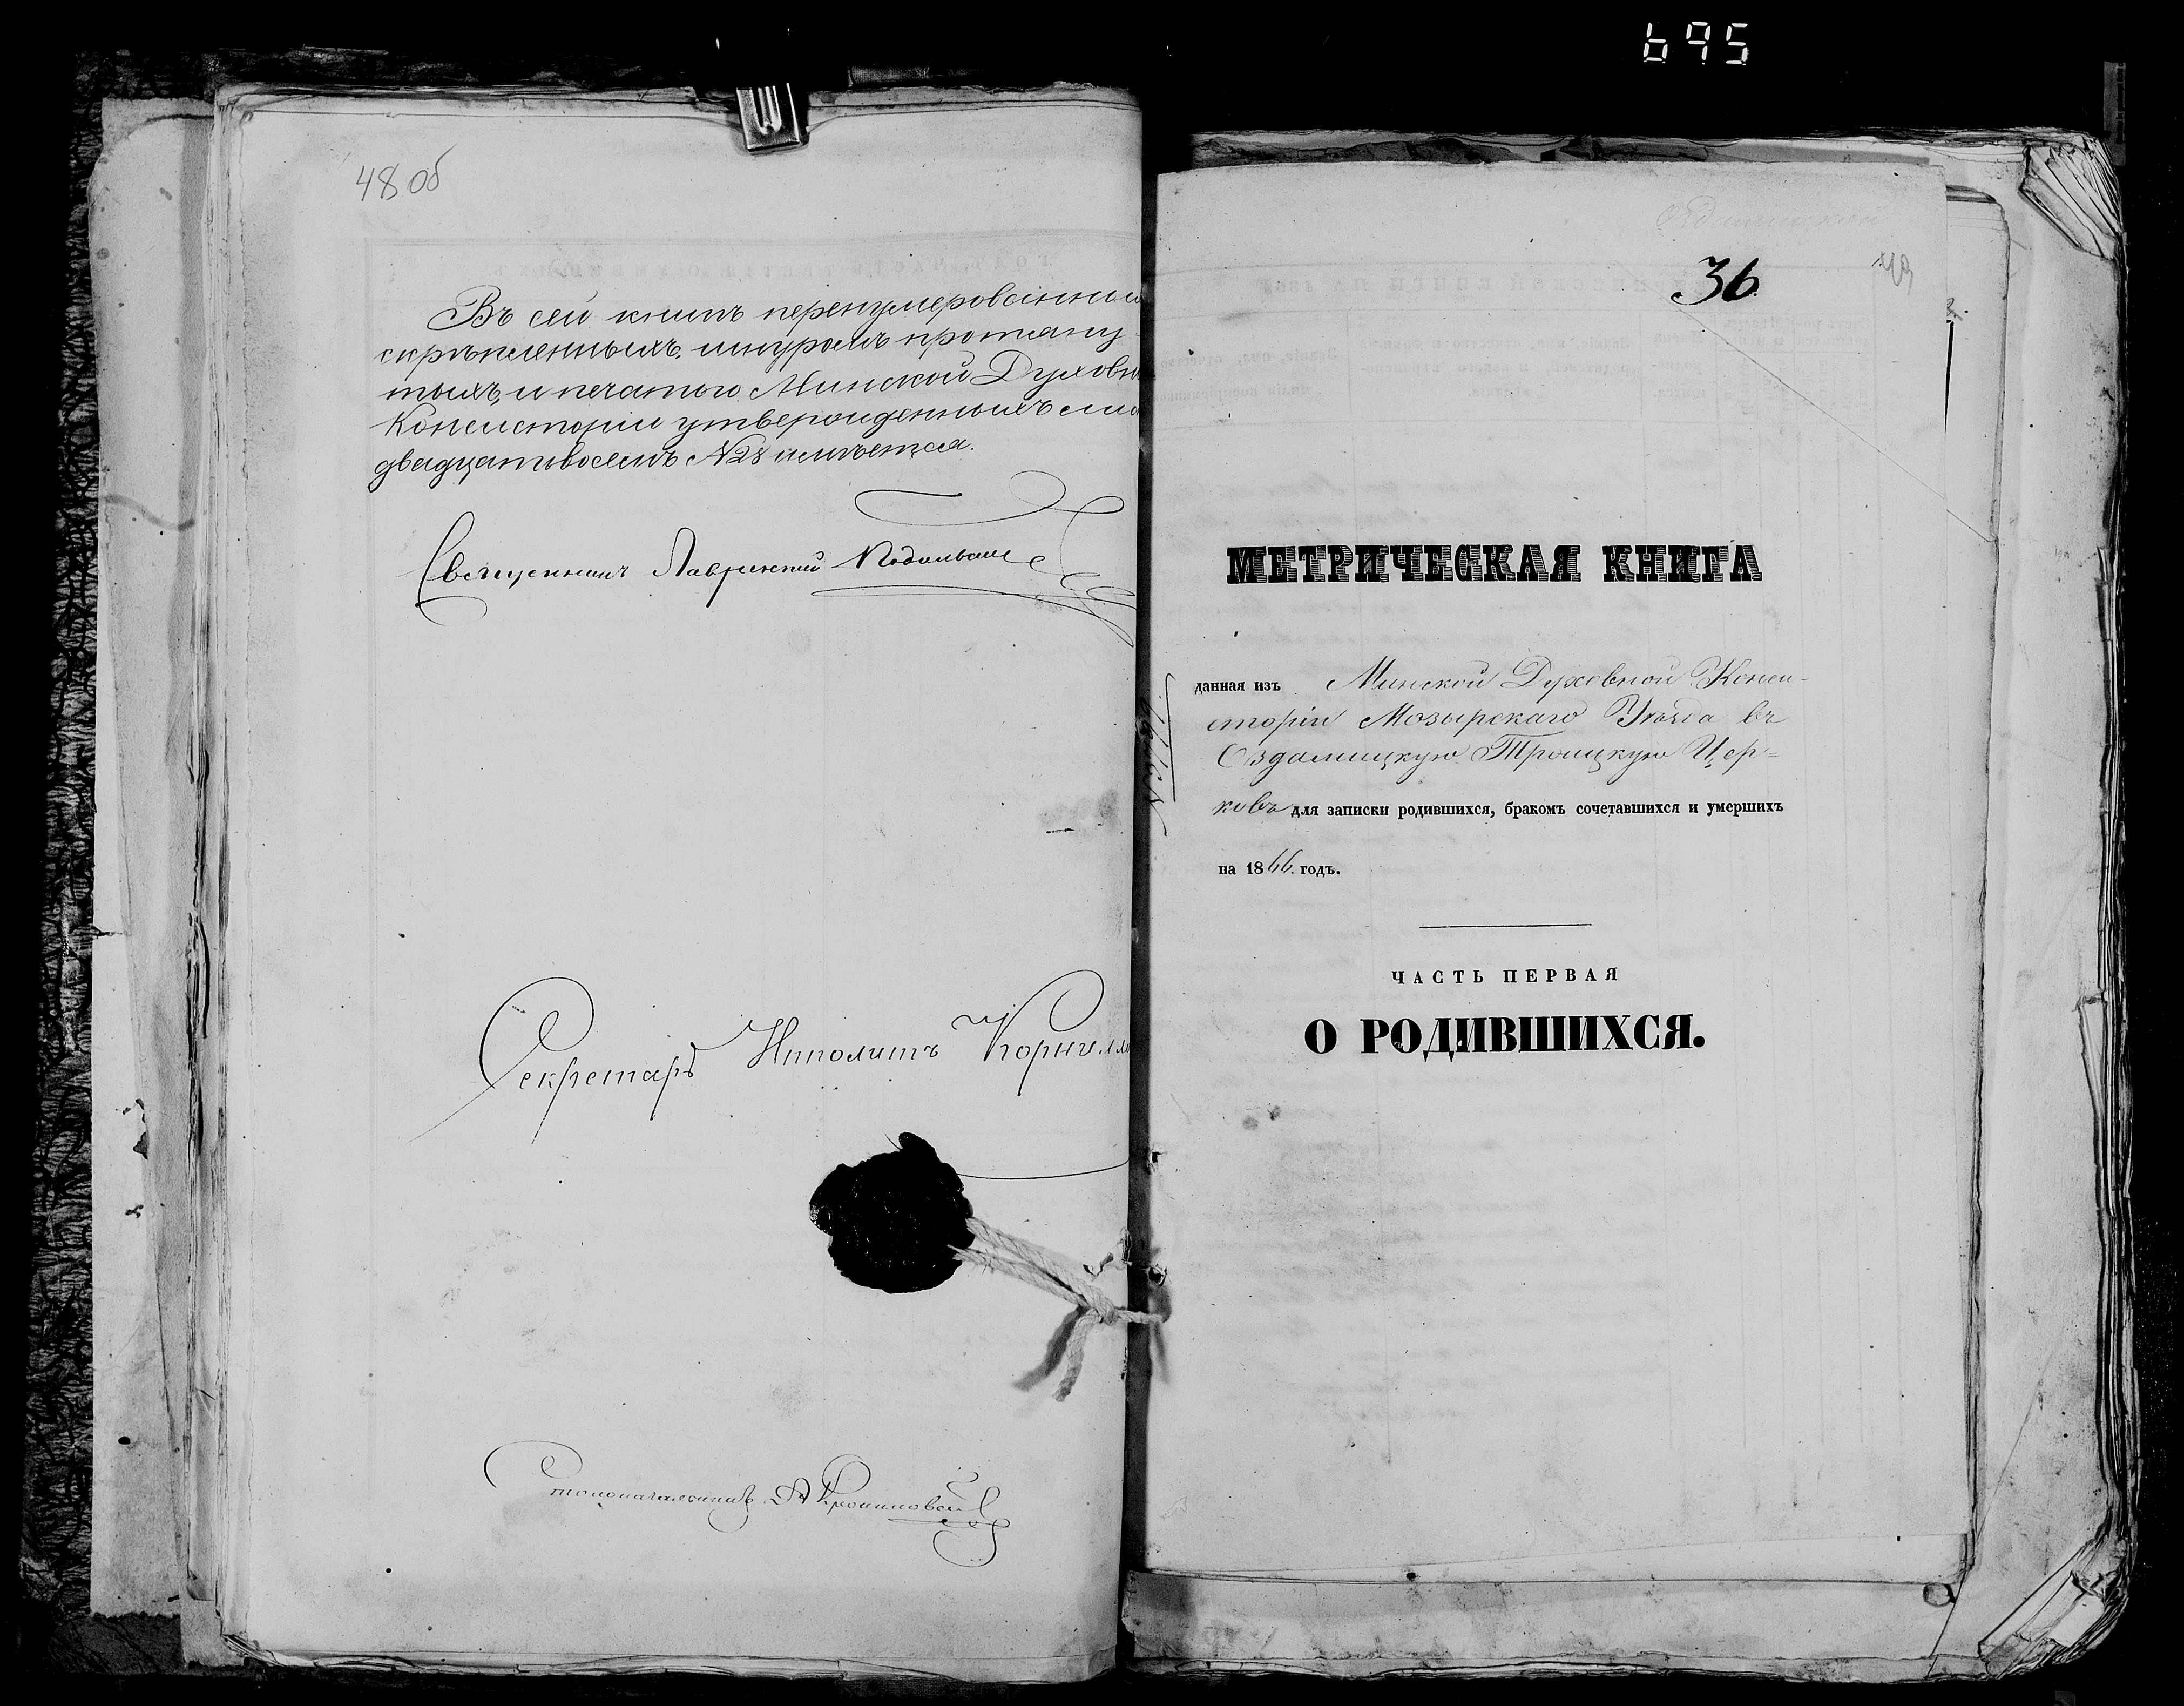 695
48 об
Въ сей книгѣ перенумерованных
скрѣпленныхъ, шнуромъ протяну-
тыхъ, и печатью Минской Духовн
Консисторіи утвержденныхъ лис
двадцативосемь №28 имѣется.
Священникъ Лаврентий
Секретарь Ипполитъ
Столоначальникъ А
36.
49
МЕТРИЧЕСКАЯ КНИГА
данная изъ Минской Духовной Конси-
сторіи Мозырскаго Уѣзда въ
Оздамицкую Троицкую Цер-
ковь для записки родившихся, бракомъ сочетавшихся и умершихъ
на 1866. годъ.
ЧАСТЬ ПЕРВАЯ
О РОДИВШИХСЯ.